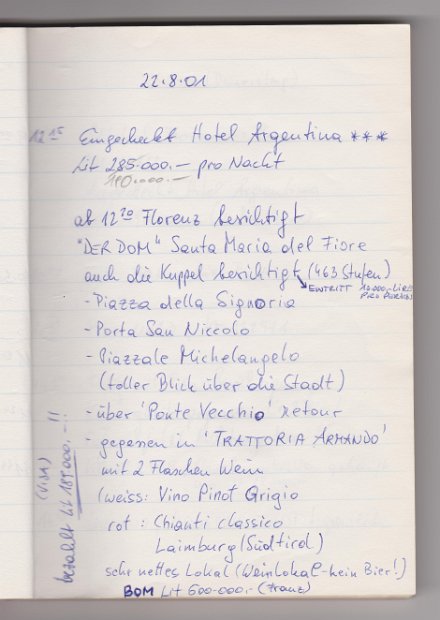 22.8.01
12 15 Eingecheckt Hotel Argentina ***
Lit 285.000.— pro Nacht
110.000.—
ab 12 20 Florenz besichtigt
"DER DOM" Santa Maria del Fiore
auch die Kuppel besichtigt (463 Stufen)
EINTRITT 10.000.- LIRE
PRO PERSON
- Piazza della Signoria
- Porta San Niccolo
- Piazzale Michelangelo
(toller Blick über die Stadt)
- über 'Ponte Vecchio' retour
- gegessen in 'TRATTORIA ARMANDO'
mit 2 Flaschen Wein
(weiss: Vino Pinot Grigio
rot : Chianti classico
Laimburg (Südtirol)
sehr nettes Lokal (Weinlokal - kein Bier!)
BOM Lit 600-000.- (Franz)
bezahlt Lit 189000.- !!
(VISA)